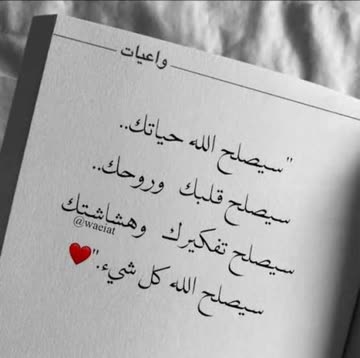 واعيات
"سيصلح الله حياتك..
سيصلح قلبك وروحك..
سيصلح تفكيرك وهشاشتك
@waeiat
سيصلح الله كل شيء."❤️